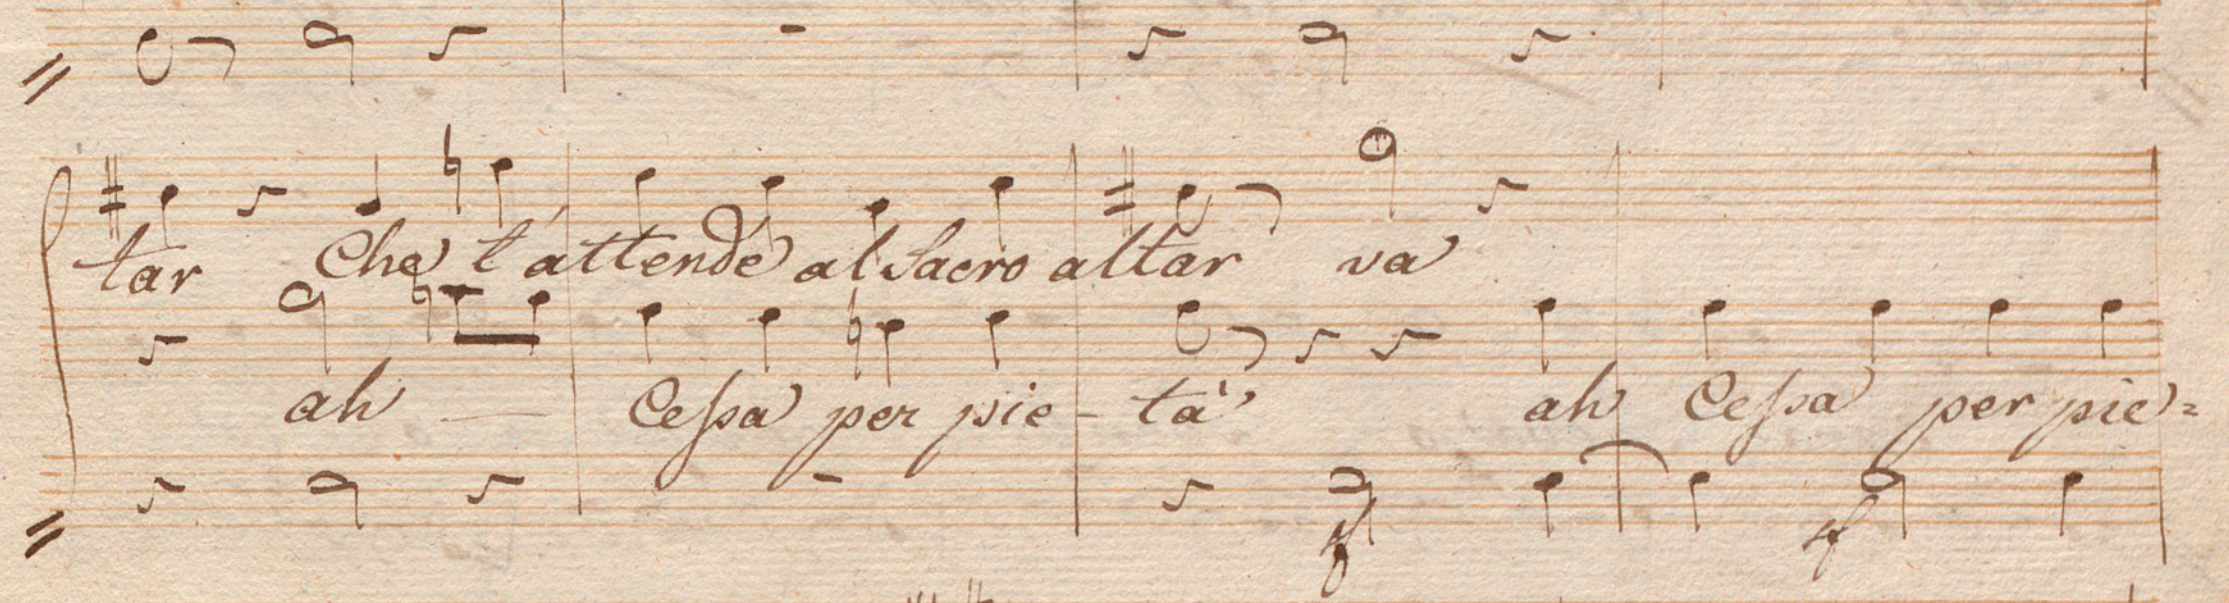 tar Che t'attende al Sacro altar va
ah Ceſsa per pie - tà ah Ceſsa per pie=
sf sf